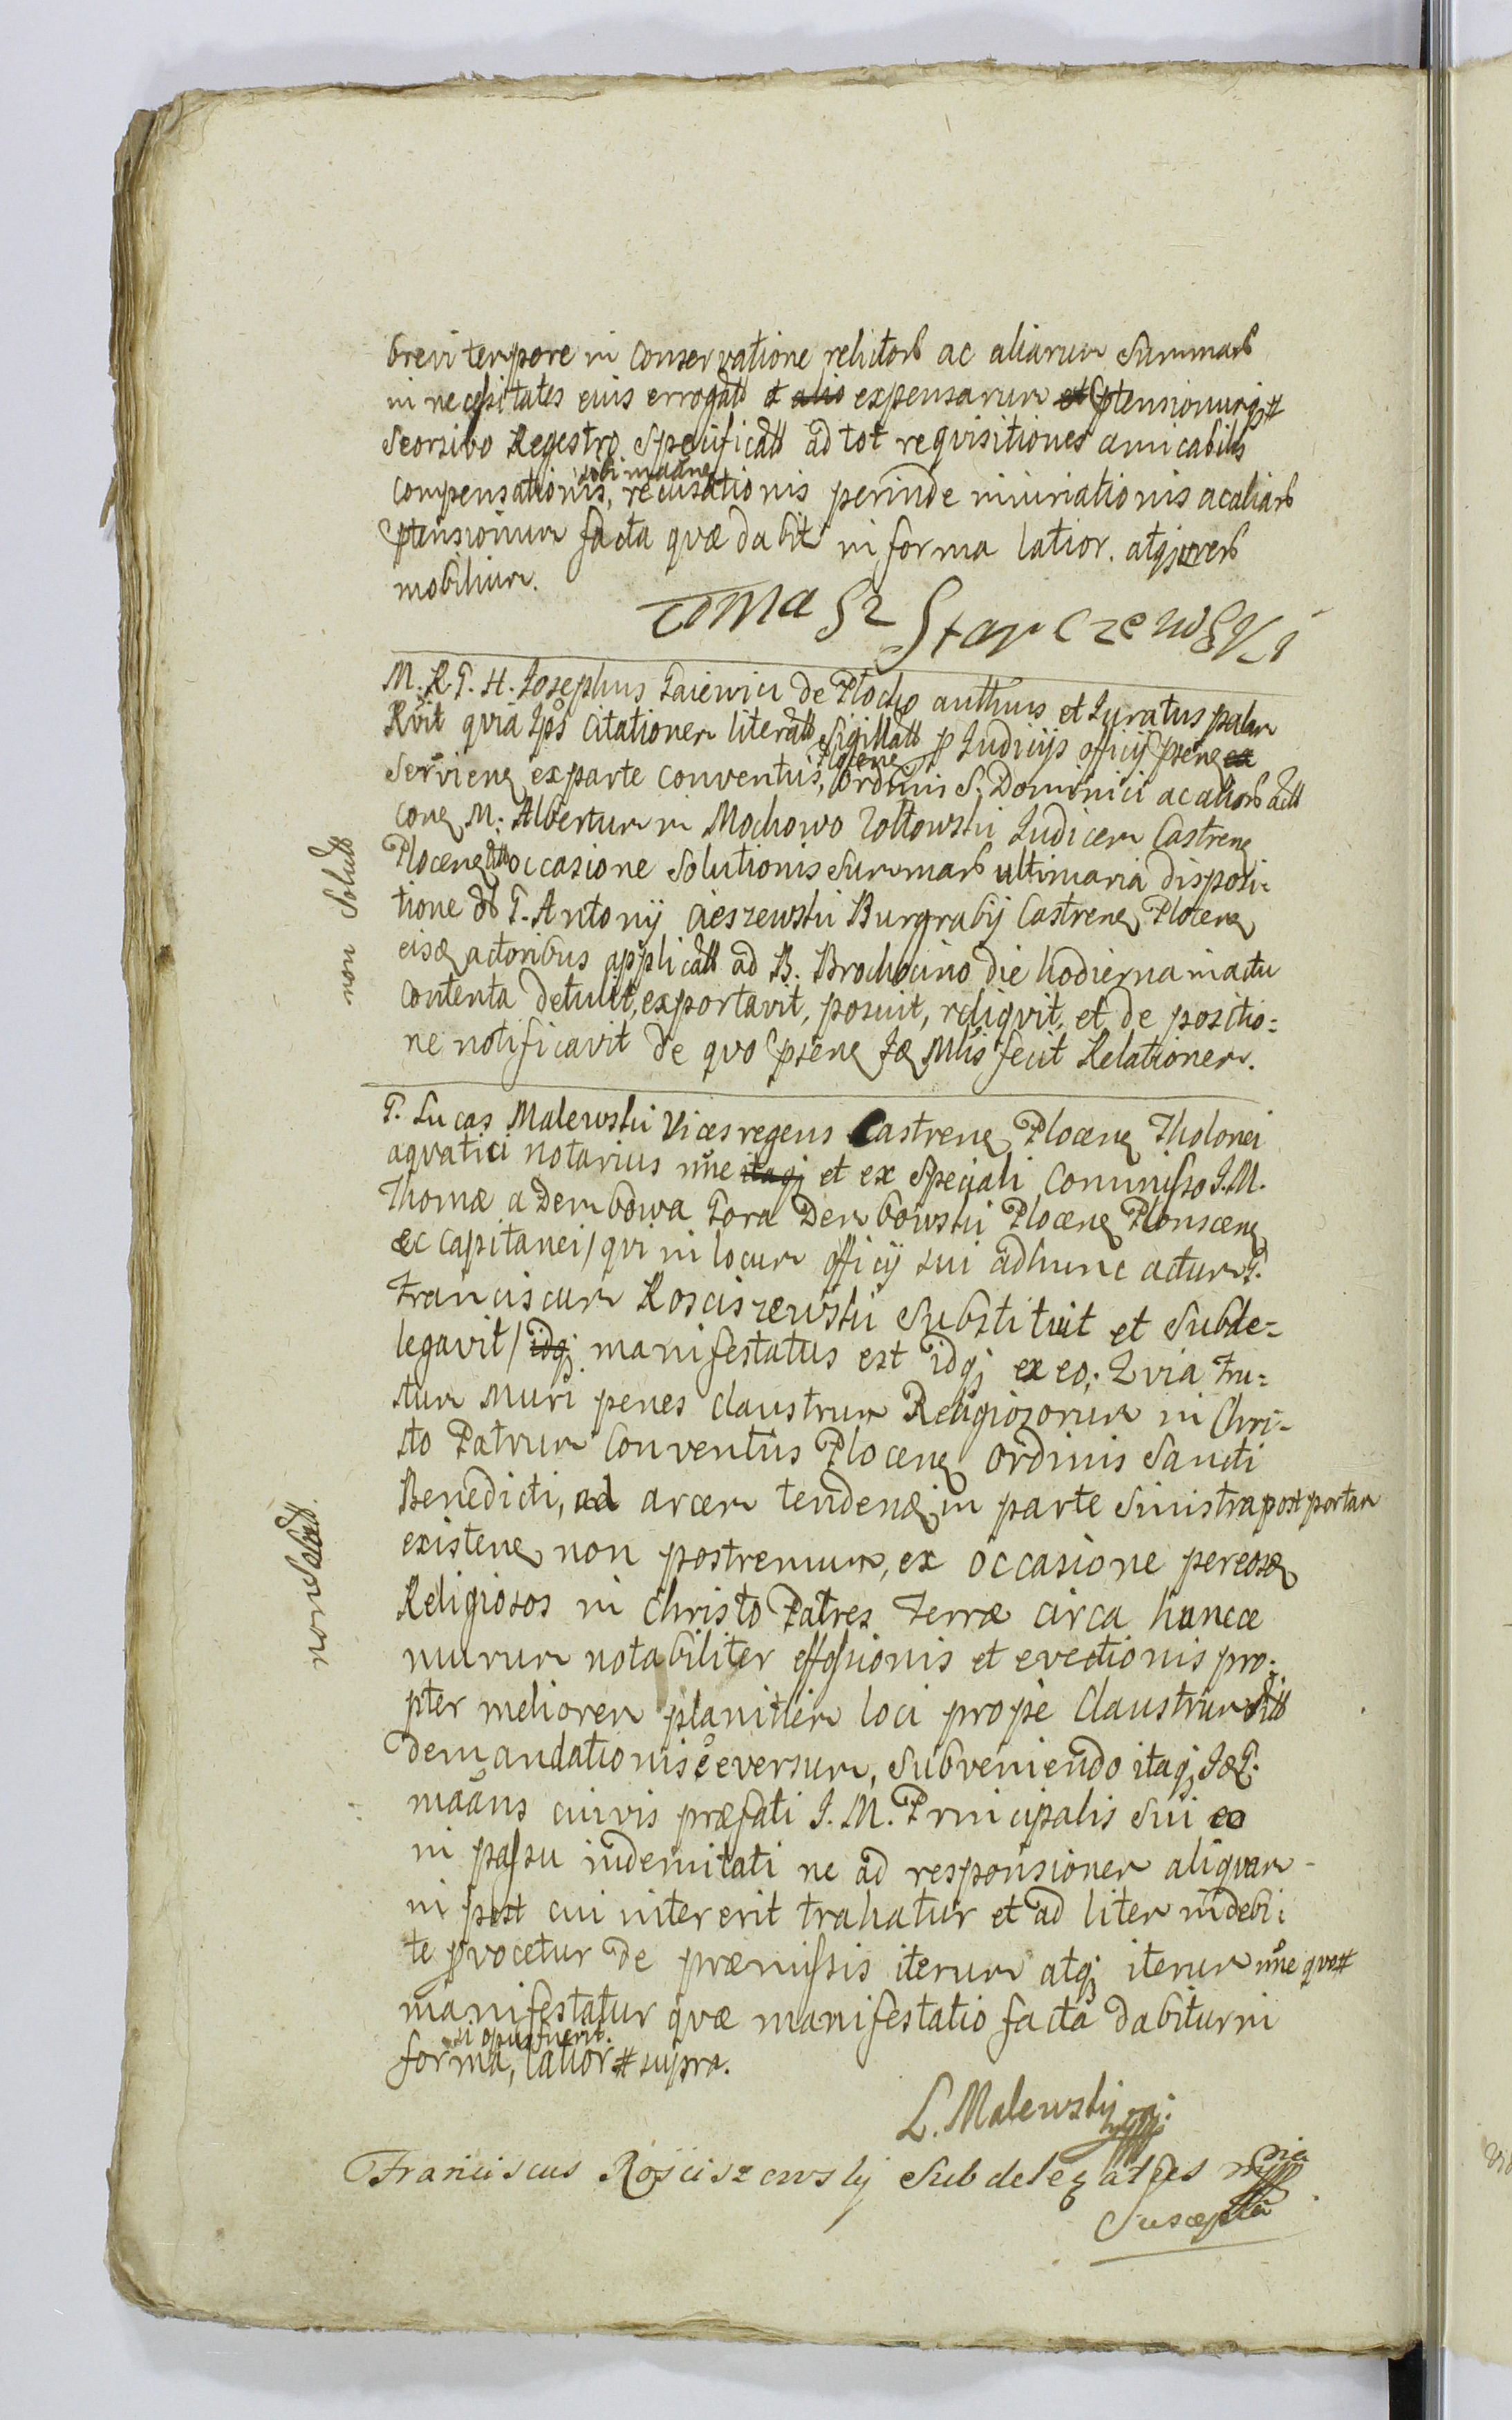 brevi tempore in conservatione relictorb ac aliarum Summarb
in necessitates eius errogatt et alio expensarum et ptensionumqz #
Seorsivo Regestro Specificatt ad tot requisitiones amicabiles
compensationis, sibi maane recusationis perinde iniuriationis ac aliarb
ptensionum facta quæ dabit in forma latior. atqz verb
mobilium.
Tomasz Starczewski
M. R. P. H. Josephus Gaiewicz de Plocko authus et Juratus palam
Rvit quia Ips Citationem literatt Sigillatt p Judicijs officij psenz ex
Servienz ex parte conventus, Plocenz Ordinis S. Dominici ac aliorb actt
conz M. Albertum in Mochowo Zołtowski Judicem Castrenz
Plocenz occasione Solutionis Summarb ultimaria disposi:
tione ol G. Antonij Cieszewski Burgrabij Castrenz Plocenz
eisdz actoribus applicatt ad B. Brochocino die hodierna in actu
contenta detulit, exportavit, posuit, reliqvit, et de positio:
ne notificavit de qvo psenz Jdz Mlis fecit Relationem.
G. Lucas Malewski Vicesregens Castrenz Plocenz Tholonei
aqvatici notarius nne itaqz et ex Speciali Commisso J. M.
Thomæ a Dembowa Gora Dembowski Plocenz Plonscenz
&c Capitanei / qvi in locum officij sui ad hunc actum G.
Franciscum Kosciszewski Substituit et Subde-
legavit / idqz manifestatus est idqz ex eo; Qvia fru:
stum muri penes claustrum Religiosorum in Chri-
sto Patrum Conventus Plocenz Ordinis Sancti
Benedicti, ad arcem tendenz in parte Sinistra post portam
existenz non postremum, ex occasione per eosdz
Religiosos in Christo Patres terræ circa hunce
murum notabiliter effossionis et evectionis pro:
pter meliorem planitiem loci prope Claustrum
demandationis e eversum, Subveniendo itaqz Jdz G.
maans cuivis præfati J. M. Principalis Sui eo
in passu indemnitati ne ad responsionem aliqvam -
in post cui intererit trahatur et ad litem indebi:
te pvocetur de præmissis iterum atqz iterum nne qvo #
manifestatur qvæ manifestatio facta dabitur in
forma, si opus fuerit. latior # supra.
L. Malewskij
Franciscus Rościszewskij Subdelegatus
Suscepta
non Solutt
non Solutt.